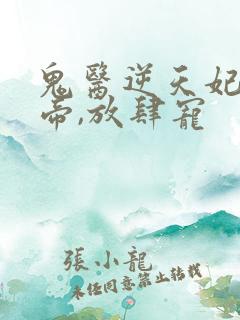 鬼醫逆天妃
帝,放肆寵
張小龍
未經同意禁止轉載